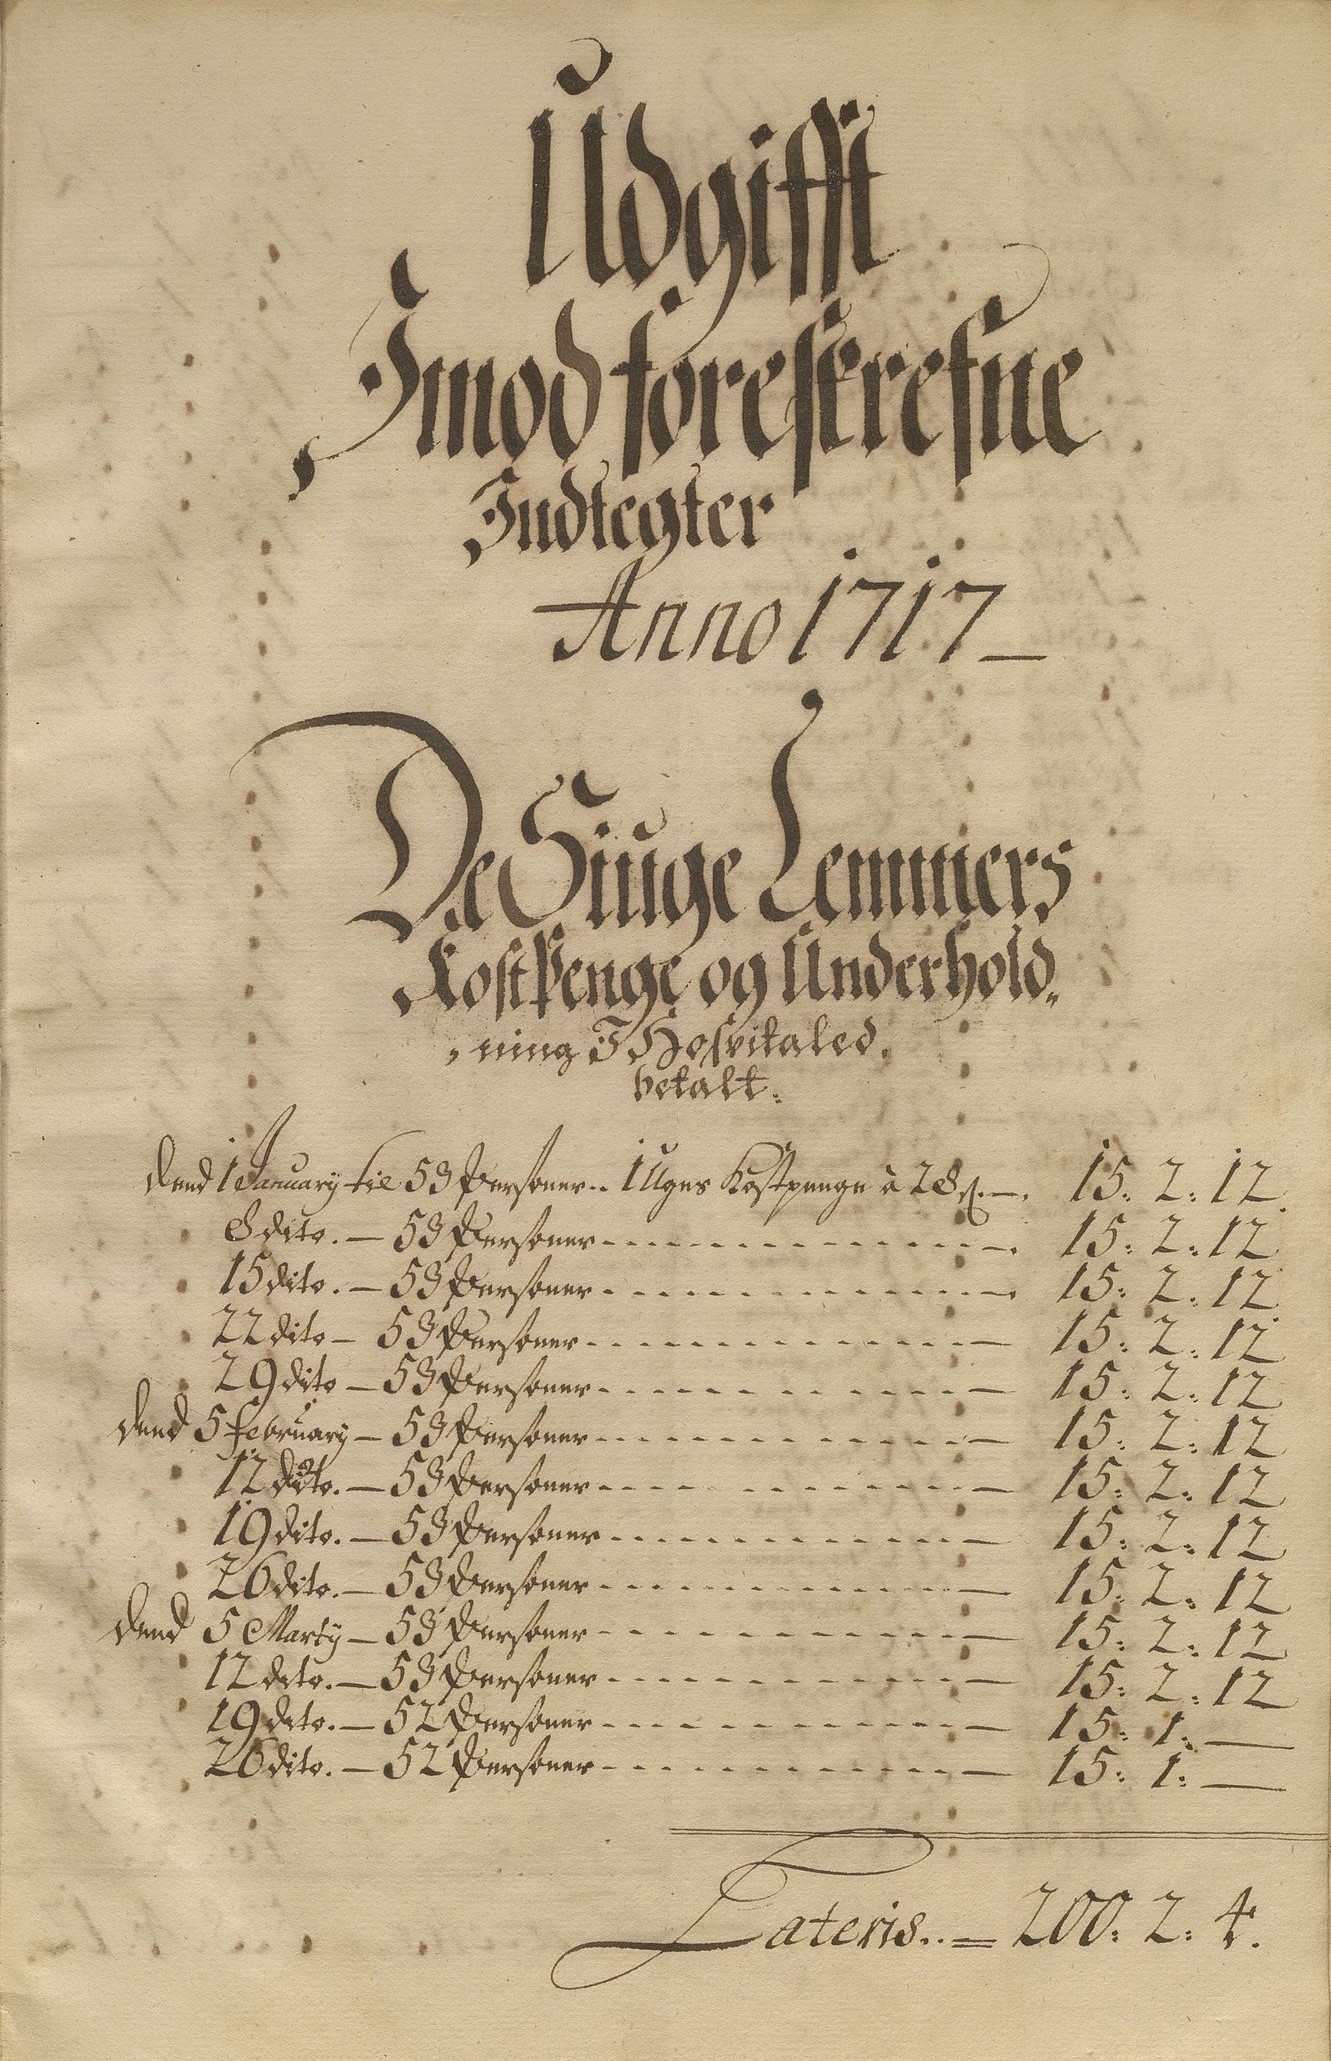 Udgifft
Imod foreskrefne
Indtegter
Anno 1717
De Siuge Lemmers
Kost Penge og Underhold„
„ning I Hospitaled.
betalt.
Dend 1 January til 53 Personer.. 1 Uges Kostpenge à 28 ß. — 15: 2: 12
8 dito. — 53 Personer — 15: 2: 12
15 dito. — 53 Personer — 15: 2: 12
22 dito — 53 Personer — 15: 2: 12
29 dito — 53 Personer — 15: 2: 12
Dend 5 February — 53 Personer — 15: 2: 12
12 dito. — 53 Personer — 15: 2: 12
19 dito. — 53 Personer — 15: 2: 12
26 dito. — 53 Personer — 15: 2: 12
Dend 5 Marty — 53 Personer — 15: 2: 12
12 dito. — 53 Personer — 15: 2: 12
19 dito. — 52 Personer — 15: 1: —
26 dito. — 52 Personer — 15: 1: —
Lateris.. = 200: 2: 4.